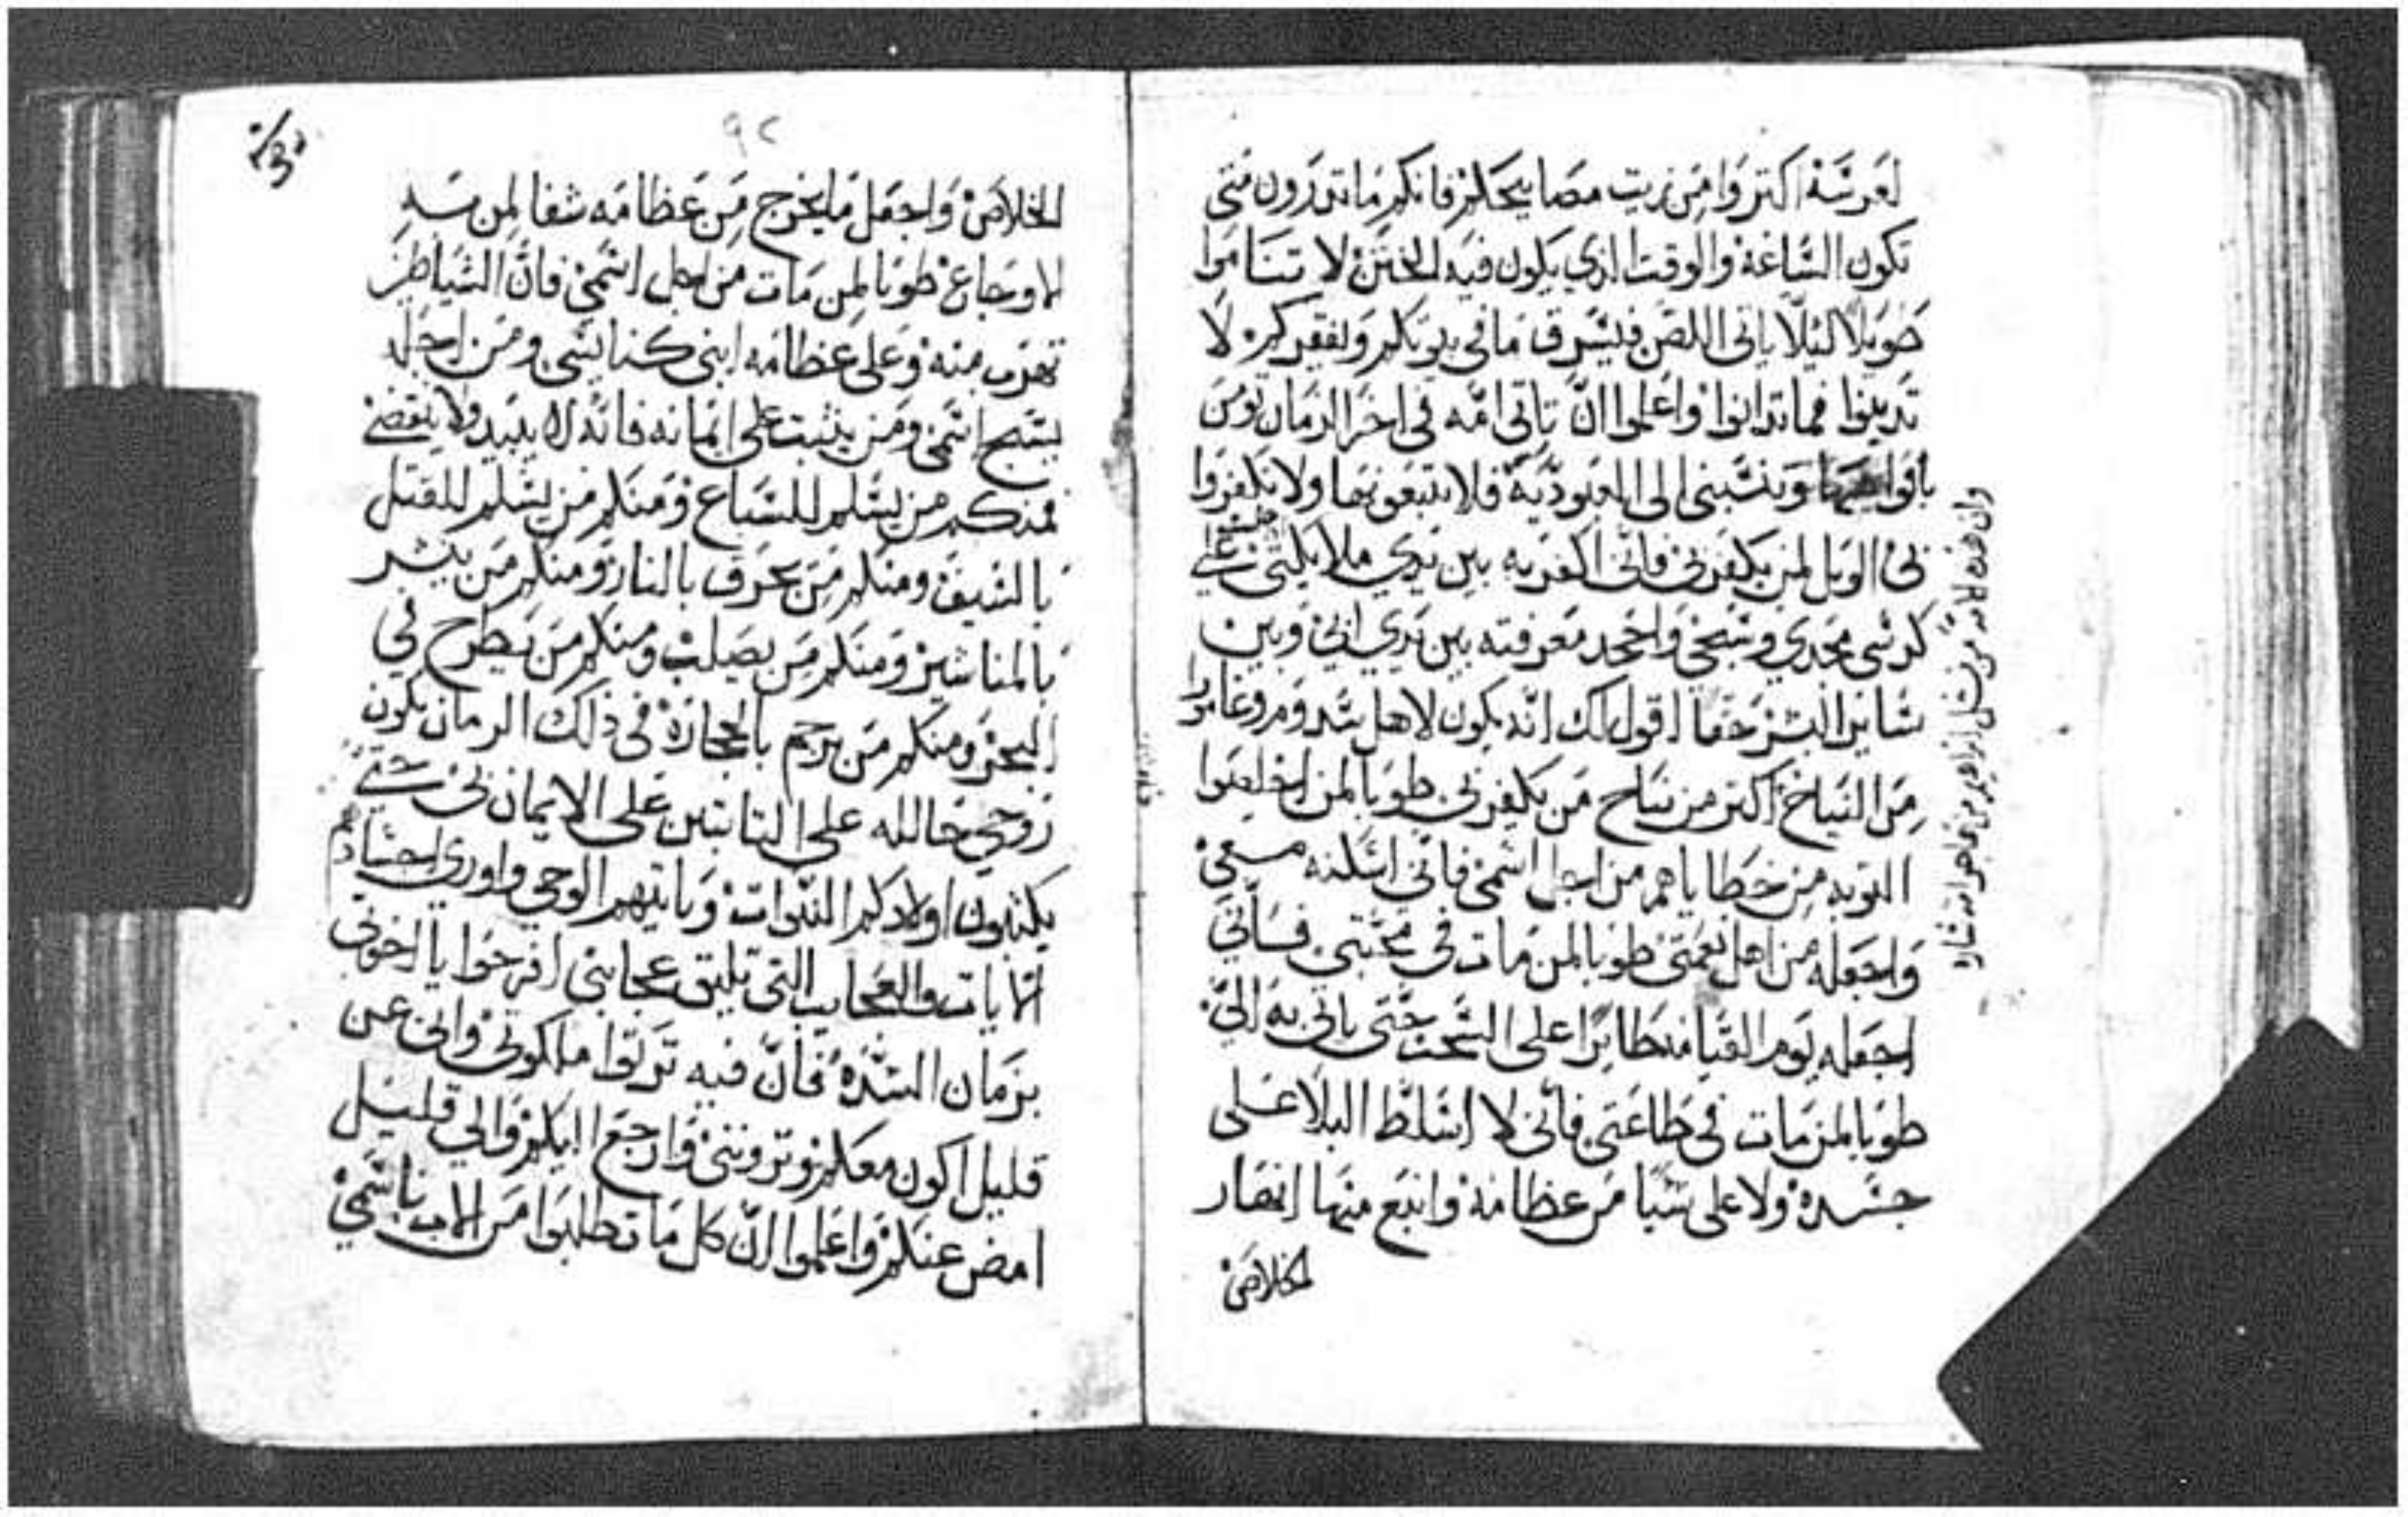 لعرسه اكتروا من زيت مصابيحكم فانكم ما تدرون متى
تكون الساعة والوقت الذي يكون فيه الختن لا تناموا
طويلا ليلا ياتى اللص فيسرق ما في بيوتكم ويفقركم لا
تدينوا فما تدانوا واعلموا ان تاتى امه في اخر الزمان تومن
بافواهها وتنسبنى الى العبودية فلا تتبعونها ولا تكفروا
بى الويل لمن يكفر بى فانى اكفر به بين يدي ملايكتى على
كرسى مجدي وتسبحى واجحد معرفته بين يدي ابى وبين
ساير البشر حقا اقول لك انه يكون لاهل سدوم وغامورا
من النياح اكتر من نياح من يكفر بى طوبا لمن اخلصوا
التوبه من خطاياهم من اجل اسمى فانى اسكنه معى
واجعله من اهل نعمتى طوبا لمن مات في محبتي فاني
اجعله يوم القيامه طايرا على السحب حتى ياتى به الىّ
طوبا لمن مات في طاعتى فانى لا اسلط البلا على
جسده ولا على شيا من عظامه وانبع منها انهار
الخلاص
وان هذه الامه من نسل ابراهيم من هاجر امة ساره
٩٢
الخلاص واجعل ما يخرج من عظامه شفا لمن به
الاوجاع طوبا لمن مات من اجل اسمى فان الشياطين
تهرب منه وعلى عظامه ابنى كنايسى ومن اجله
يسبح اسمى ومن يثبت على ايمانه فانه لا يبيد ولا ينقضى
فمنكم من يسلم للسباع ومنكم من يسلم للقتل
بالسيف ومنكم من يحرق بالنار ومنكم من ينشر
بالمناشير ومنكم من يصلب ومنكم من يطرح في
البحر ومنكم من يرجم بالحجارة في ذلك الزمان يكون
روحي حالله على التابتين على الايمان بى حتى
يكتبون اولادكم النبوات وياتيهم الوحي واوري اجسادهم
الايات والعجايب التى تليق عجايبى افرحوا يا اخوتى
بزمان الشدة فان فيه ترتوا ملكوتى وانى عن
قليل اكون معكم وترونى وارجع اليكم والي قليل
امض عنكم واعلموا ان كل ما تطلبوا من الاب باسمي